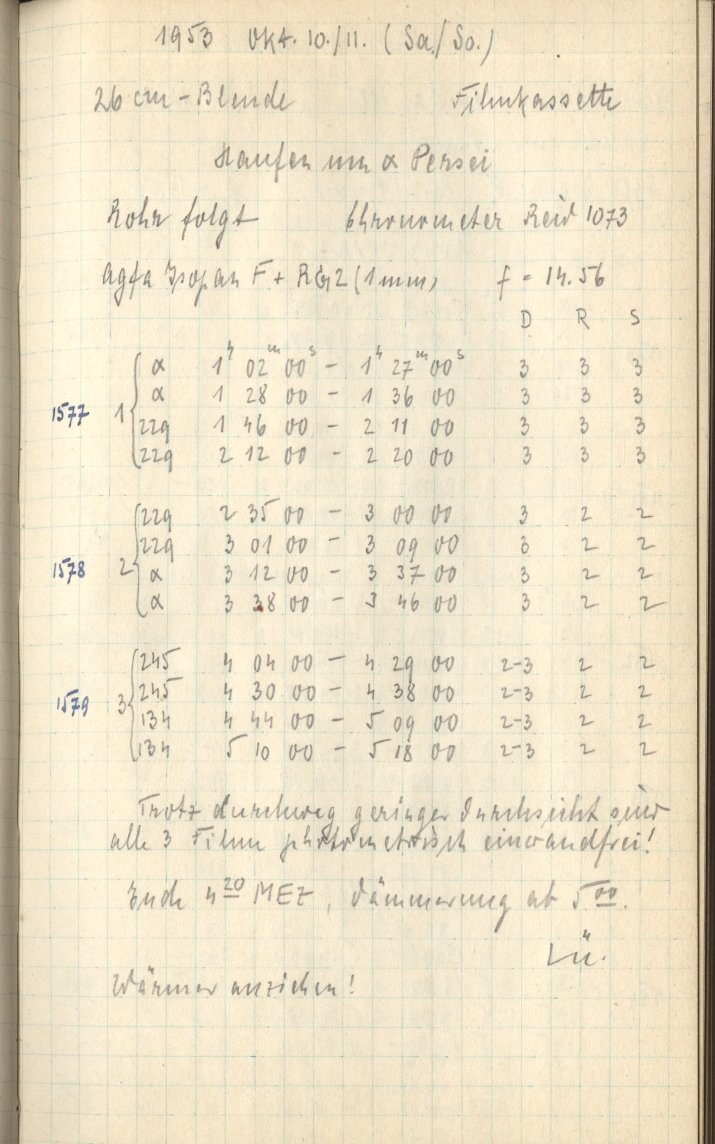 1953 Okt. 10./11. (Sa./So.)
26 cm - Blende Filmkassette
Haufen um α Persei
Rohr folgt Chronometer Reid 1073
Agfa Isopan F + RG2 (1mm) f = 14.56
D R S
1577 1 { α 1ʰ 02ᵐ 00ˢ - 1ʰ 27ᵐ 00ˢ 3 3 3
α 1 28 00 - 1 36 00 3 3 3
229 1 46 00 - 2 11 00 3 3 3
229 2 12 00 - 2 20 00 3 3 3
1578 2 { 229 2 35 00 - 3 00 00 3 2 2
229 3 01 00 - 3 09 00 3 2 2
α 3 12 00 - 3 37 00 3 2 2
α 3 38 00 - 3 46 00 3 2 2
1579 3 { 245 4 04 00 - 4 29 00 2-3 2 2
245 4 30 00 - 4 38 00 2-3 2 2
134 4 44 00 - 5 09 00 2-3 2 2
134 5 10 00 - 5 18 00 2-3 2 2
Trotz durchweg geringer Durchsicht sind
alle 3 Filme photometrisch einwandfrei!
Ende 4²⁰ MEZ, Dämmerung ab 5⁰⁰.
Lü.
Wärmer anziehen!